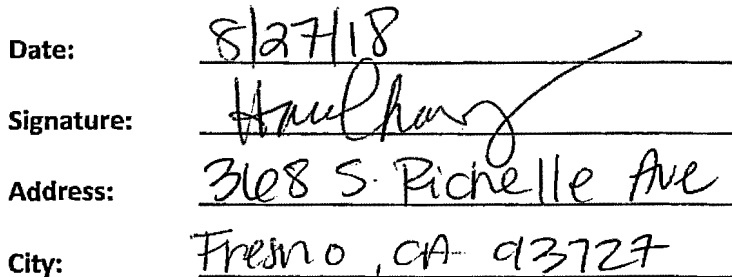 Date: 8/27/18
Signature:
Address: 368 S. Richelle Ave
City: Fresno, CA 93727